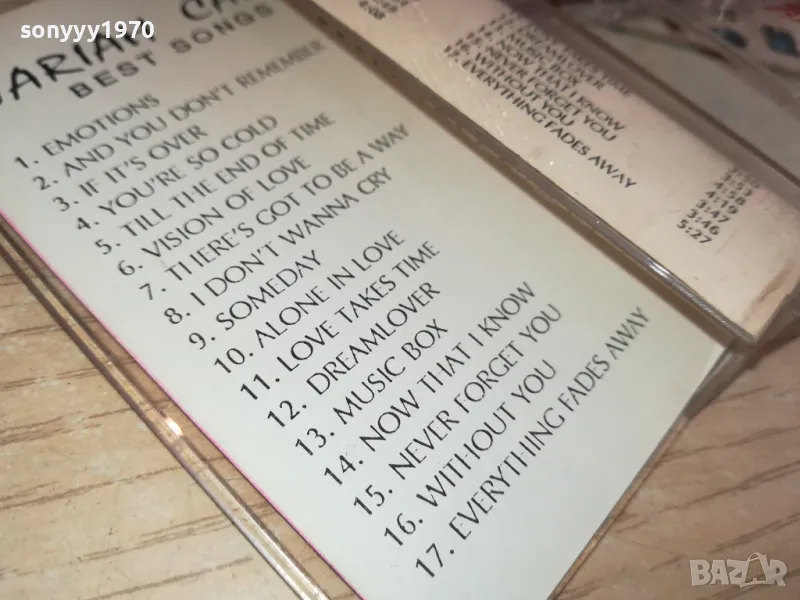 sonyyy1970
BEST SONGS
1. EMOTIONS
2. AND YOU DON'T REMEMBER
3. IF IT'S OVER
4. YOU'RE SO COLD
5. TILL THE END OF TIME
6. VISION OF LOVE
7. THERE'S GOT TO BE A WAY
8. I DON'T WANNA CRY
9. SOMEDAY
10. ALONE IN LOVE
11. LOVE TAKES TIME
12. DREAMLOVER
13. MUSIC BOX
14. NOW THAT I KNOW
15. NEVER FORGET YOU
16. WITHOUT YOU
17. EVERYTHING FADES AWAY
NOW THAT I KNOW
NEVER FORGET YOU
WITHOUT YOU
EVERYTHING FADES AWAY
3:53
4:58
4:19
3:47
3:46
5:27
BAZAR